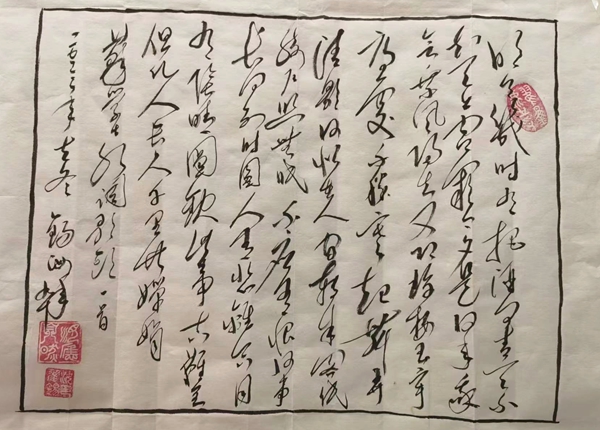 明月几时有把酒问青天不
知天上宫阙今夕是何年我欲
乘风归去又恐琼楼玉宇
高处不胜寒起舞弄
清影何似在人间转朱阁低
绮户照无眠不应有恨何事
长向别时圆人有悲欢离合月
有阴晴圆缺此事古难全
但愿人长久千里共婵娟
苏学士水调歌头一首
年冬